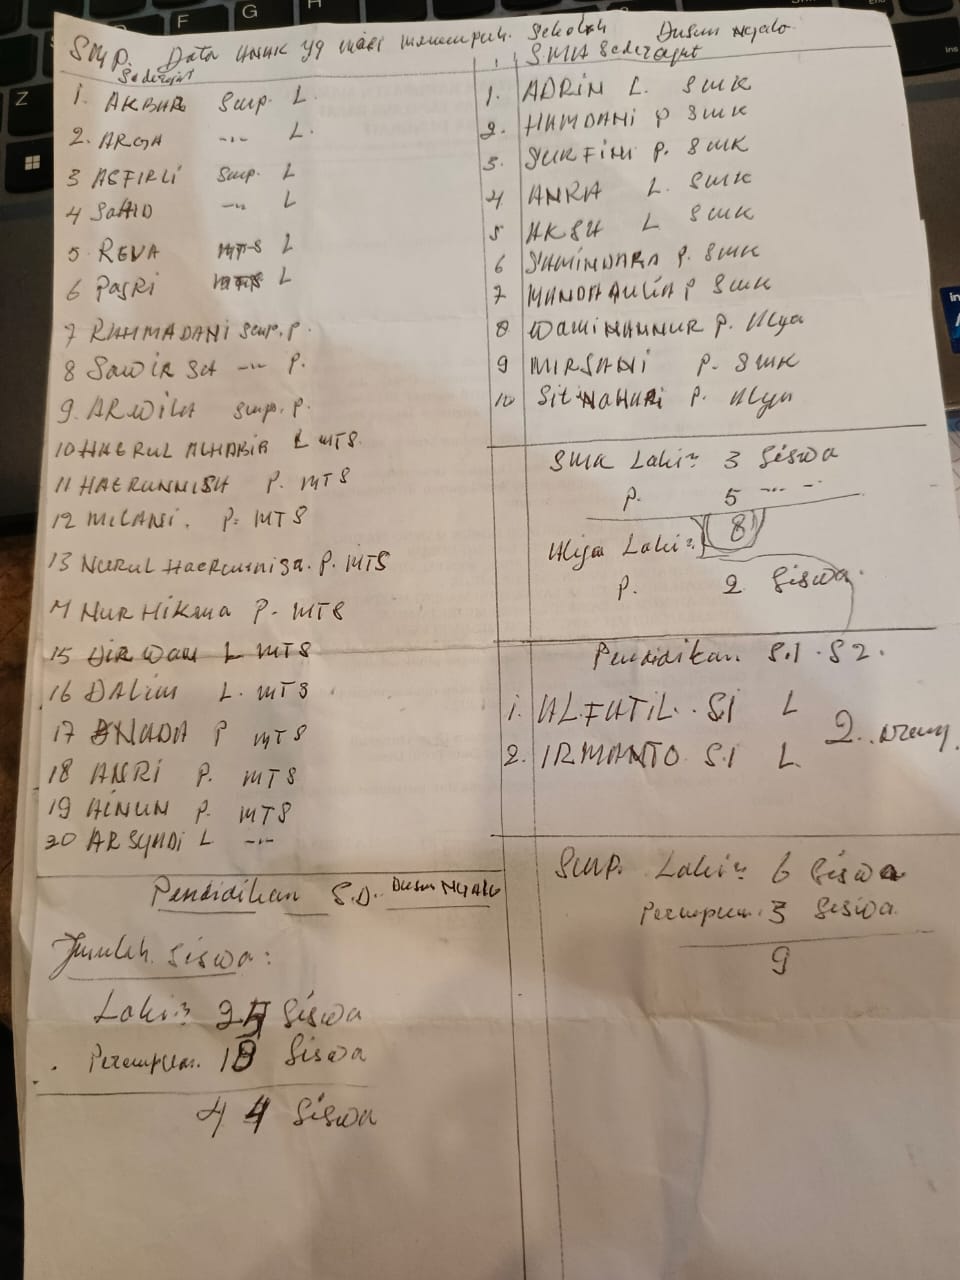 SMP. Data anak yg masi menempuh. Sekolah Dusun Ngalo.
Sederajat
1. AKBAR Smp. L
2. ARGA -..- L.
3 ASFIRLI Smp. L
4 SAHID -..- L
5 REVA MTS L
6 PASRI MTS L
7 RAHMADANI Smp. P.
8 SAWIR SA -..- P.
9. ARWILA Smp. P.
10 HAERUL ALHABIB L MTS.
11 HAERUNNISA P. MTS
12 MILANI. P. MTS
13 Nurul Haerunnisa. P. MTS
14 Nur Hikma P. MTS
15 Airwan L MTS
16 DALIM L. MTS
17 ANADA P MTS
18 ANRI P. MTS
19 AINUN P. MTS
20 ARSYADI L -..-
Pendidikan S.D. Dusun Ngalo
Jumlah Siswa:
Laki:2 25 Siswa
Perempuan. 18 Siswa
44 Siswa
SMA Sederajat
1. ADRIN L. SMK
2. HAMDANI P SMK
3. P. SMK
4 ANRA L. SMK
5 AKSA L SMK
6 SAMINDARA P. SMK
7 MANDA AULIA P SMK
8 P. Alya
9 MIRSANI P. SMK
10 P. Alya
SMK Laki:2 3 Siswa
P. 5 -..-
8
Aliya Laki:2
P. 2 Siswa.
Pendidikan S.1 . S2.
1. ALFATIL. S1 L
2. IRMANTO S.1 L.
2. orang
Smp. Laki:2 6 Siswa
Perempuan. 3 Seswa
9